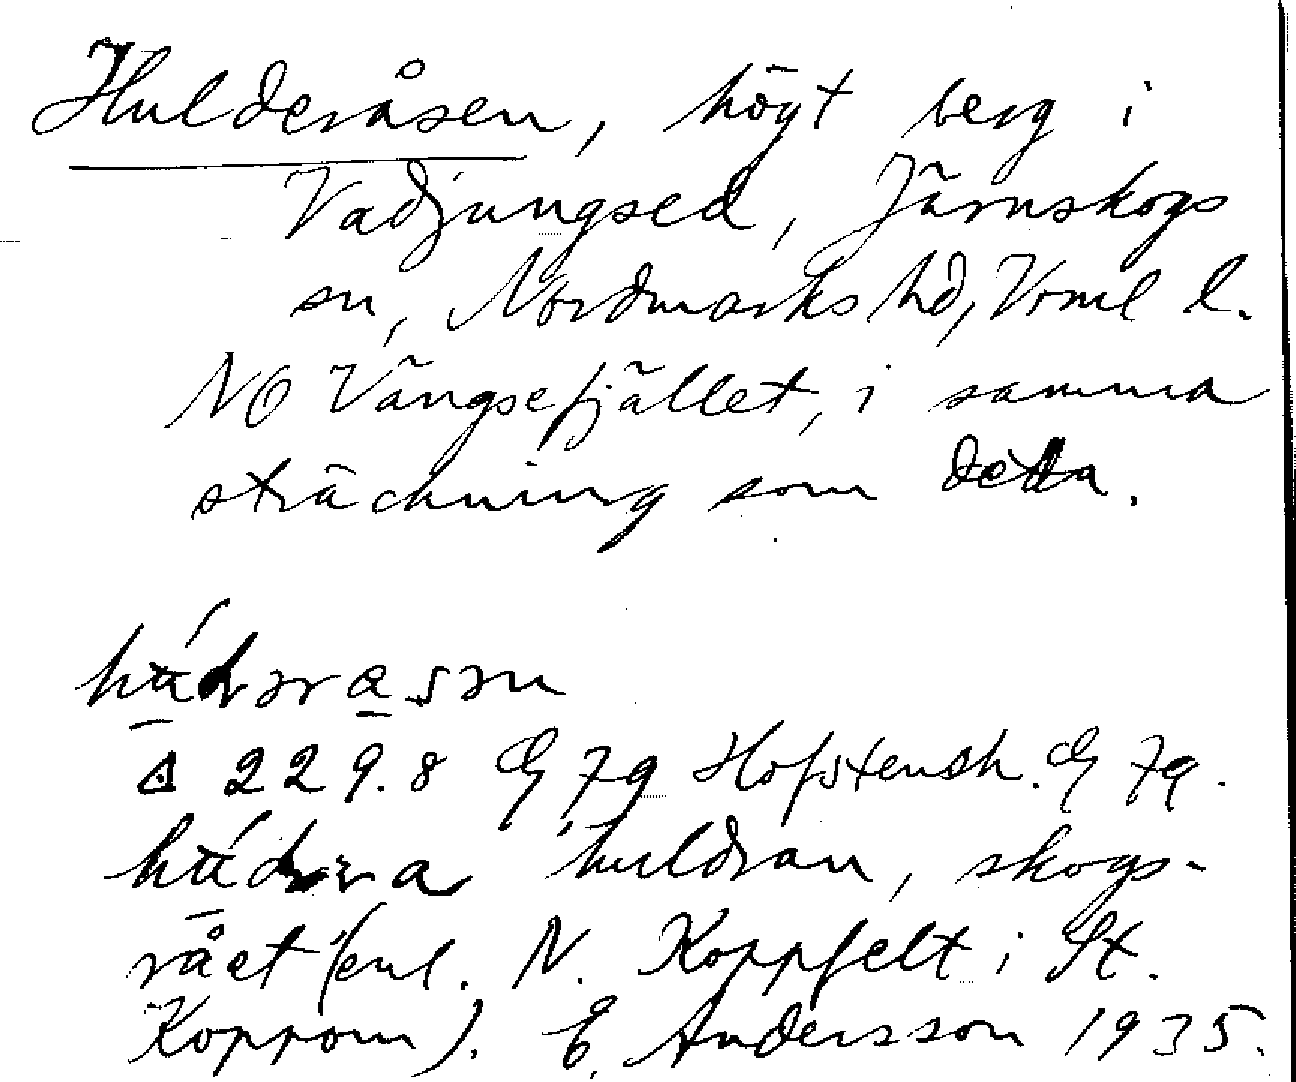 Hulderåsen, högt berg i
Vadjungsed, Järnskogs
sn, Nordmarks hd, Vrml l.
NO Vängsefjället, i samma
sträckning som detta.
229.8 G79 Hofstensk. G79.
'huldran, skogs-
rået' (enl. N. Koppfelt i St.
Koppom). E. Andersson 1935.